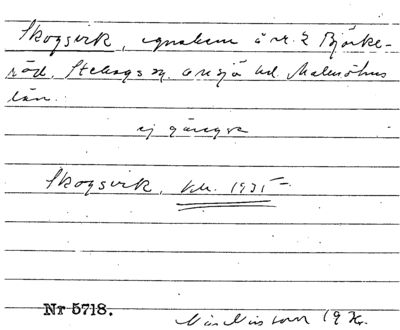 Skogsvik, egnahem å nr. 2 Björke-
röd, Stehags sn. Onsjö hd. Malmöhus
län.
ej gängse
Skogsvik, 1935
Nr 5718.